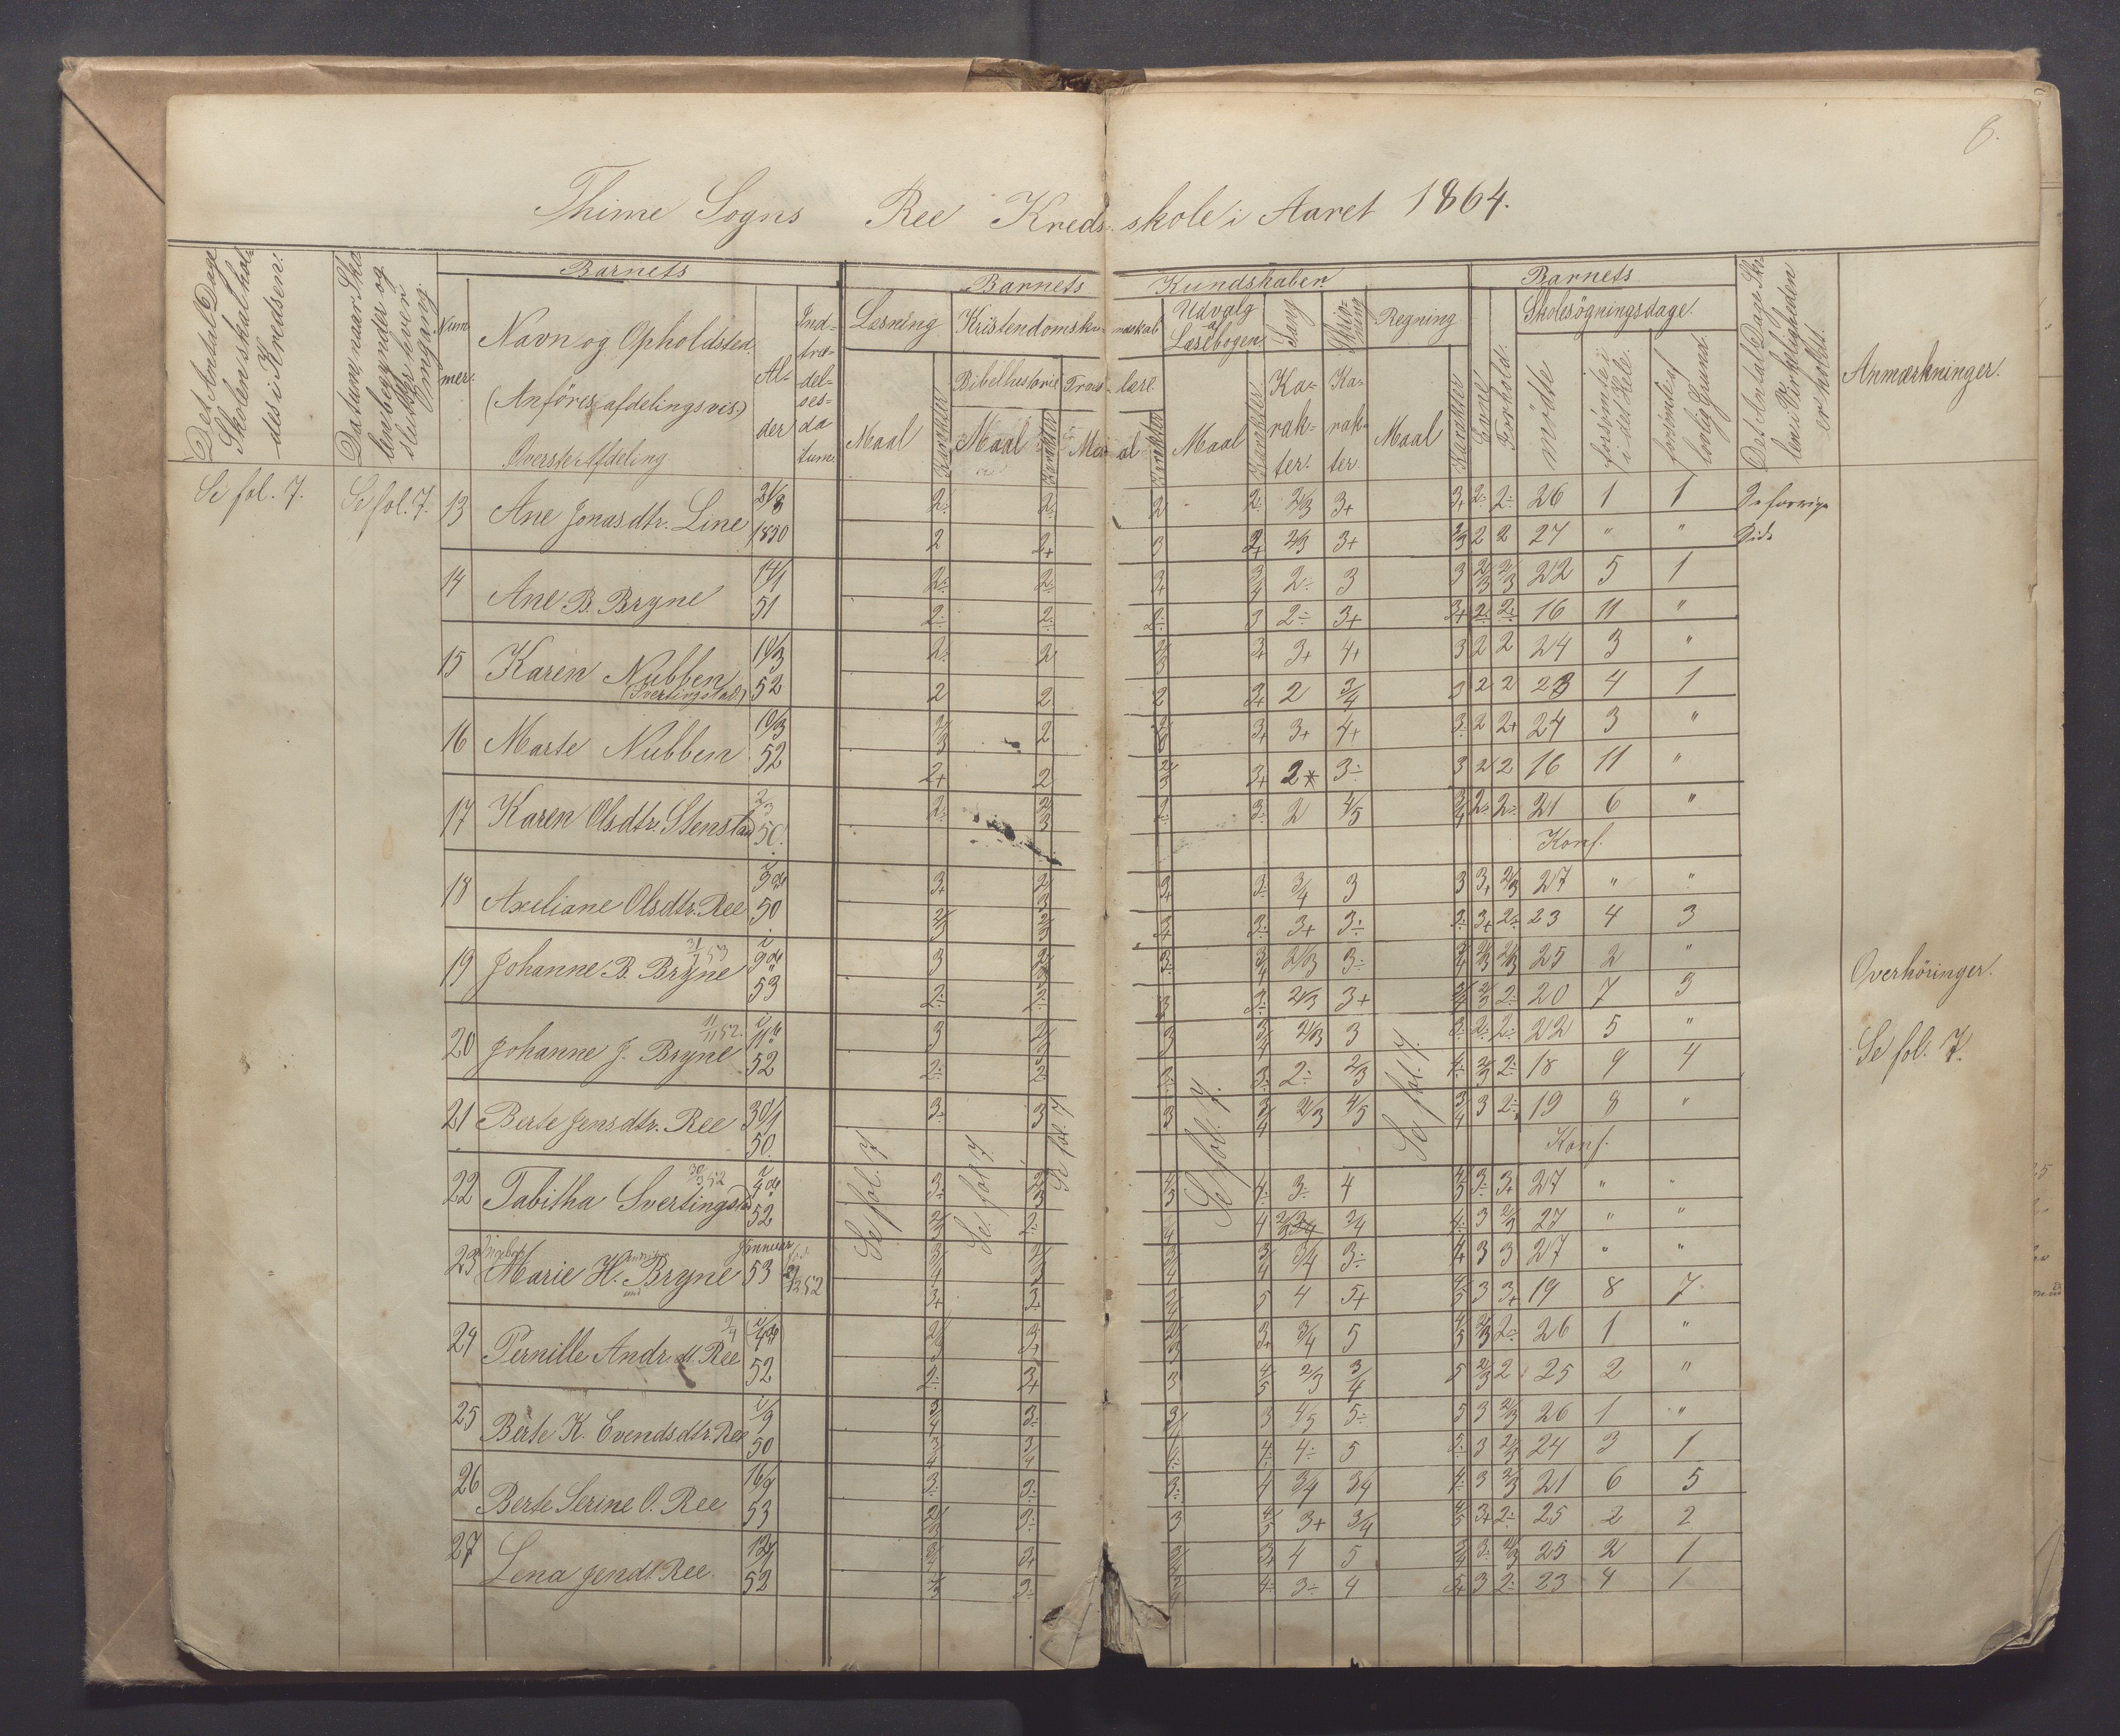 8.
Thime Sogns Ree Kreds skole i Aaret 1864.
Det Antal Dage Skolen skal holdes i Kredsen.
Datum, naar Skolen begynder og slutter hver Omgang.
Barnets
Nummer.
Navn og Opholdsted.
(Anföres afdelingsvis.)
Överste Afdeling
Alder
Indtrædelsesdatum.
Barnets Kundskaber
Læsning
Maal
Karakter
Kristendomskundskab
Bibelhistorie
Maal
Karakter
Troeslære
Maal
Karakter
Udvalg af Læsebogen
Maal
Karakter
Sang
Karakter.
Skrivning
Karakter.
Regning
Maal
Karakter
Barnets
Evne
Forhold.
Skolesögningsdage.
mödte
forsömte i det Hele.
forsömte af lovlig Grund.
Det Antal Dage Skolen i Virkeligheden er holdt.
Anmærkninger.
Se fol. 7. Se fol. 7. 13 Ane Jonasdtr. Line 1850 2÷ 2÷ 2 2÷ 2/3 3+ 3+ 2÷ 2÷ 26 1 1 Se forrige
2 2+ 3 2/3 3+ 2 2 27 " " Side
14 Ane B. Bryne 14/1 51 2÷ 2÷ 3+ 3/4 2÷ 3 3 2/3 2/3 22 5 1
2÷ 2÷ 2÷ 3 2÷ 3+ 3+ 2÷ 2÷ 16 11 "
15 Karen Nubben (Svertingstad) 10/3 52 2÷ 2 2/3 3+ 3+ 4+ 3 2 2 24 3 "
2 2 2 3+ 2 3/4 3 2 2 23 4 1
16 Marte Nubben 10/3 52 2/3 2 2/3 3+ 3+ 4+ 3÷ 2 2+ 24 3 "
2+ 2 2/3 3+ 2 3÷ 3 2 2 16 11 "
17 Karen Olsdtr. Stenstad 2/3 50. 2÷ 2/3 2÷ 3÷ 2 4/5 3/4 2÷ 2÷ 21 6 "
Konf.
18 Axeliane Olsdtr. Ree i 9de 50 3+ 2/3 3+ 3÷ 3/4 3 3 3+ 2/3 27 " "
2/3 2/3 3+ 3÷ 3+ 3÷ 3÷ 3+ 2÷ 23 4 3
19 Johanne B. Bryne 53 i 9de 53 3 2/3 3÷ 3/4 2/3 3÷ 3/4 2/3 2/3 25 2 "
2÷ 2÷ 3 3÷ 2/3 3+ 3/4 2/3 2÷ 20 7 3
20 Johanne J. Bryne 11/11 52. 52 3 2/3 3 3/4 2/3 3 3÷ 2÷ 2÷ 22 5 "
2÷ 2÷ 3÷ 3÷ 2÷ 2/3 4÷ 2/3 2÷ 18 9 4
21 Berte Jensdtr. Ree 30/1 50. 3÷ 3 3 3/4 2/3 4/5 3/4 3 2÷ 19 8 "
Konf.
22 Tabitha Svertingstad 52 i 4de 52 3÷ 2/3 4÷ 3÷ 4 4/5 3÷ 3+ 27 " "
2/3 2÷ 4 3/4 4÷ 3 2/3 27 " "
23 Marie H. Bryne Januar 53 52 3/4 3/4 3/4 3÷ 4+ 3 3 27 " "
3+ 3+ 5 4 5+ 4/5 3 3+ 19 8 7
24 Pernille Andr. d. Ree 52 2/3 3+ 2/3 3+ 3/4 5 4/5 2/3 2÷ 26 1 "
2÷ 3+ 3 4/5 2/3 3/4 5 2/3 2 25 2 "
25 Berte K. Evendsdtr. Ree i 9 50 3/4 3÷ 3/4 3 4/5 5÷ 5 3 2/3 26 1 "
3/4 3/4 4÷ 4÷ 4÷ 5 5÷ 3 2/3 24 3 1
26 Berte Serine O. Ree 16/9 53 3÷ 3÷ 3÷ 4 3/4 3/4 4÷ 3 2/3 21 6 5
2/3 3÷ 3 4/5 3+ 3/4 4/5 3+ 2÷ 25 2 2
27 Lena Jendt. Ree. 12/1 52 3/4 3+ 3/4 3+ 4 5 3/4 3÷ 2/3 25 2 1
3÷ 4÷ 3÷ 4 5+ 3 2÷ 23 4 1
Se fol. 7
Se fol 7
Se fol. 7
Se fol. 7.
Se fol. 7.
Overhöringer.
Se fol. 7.